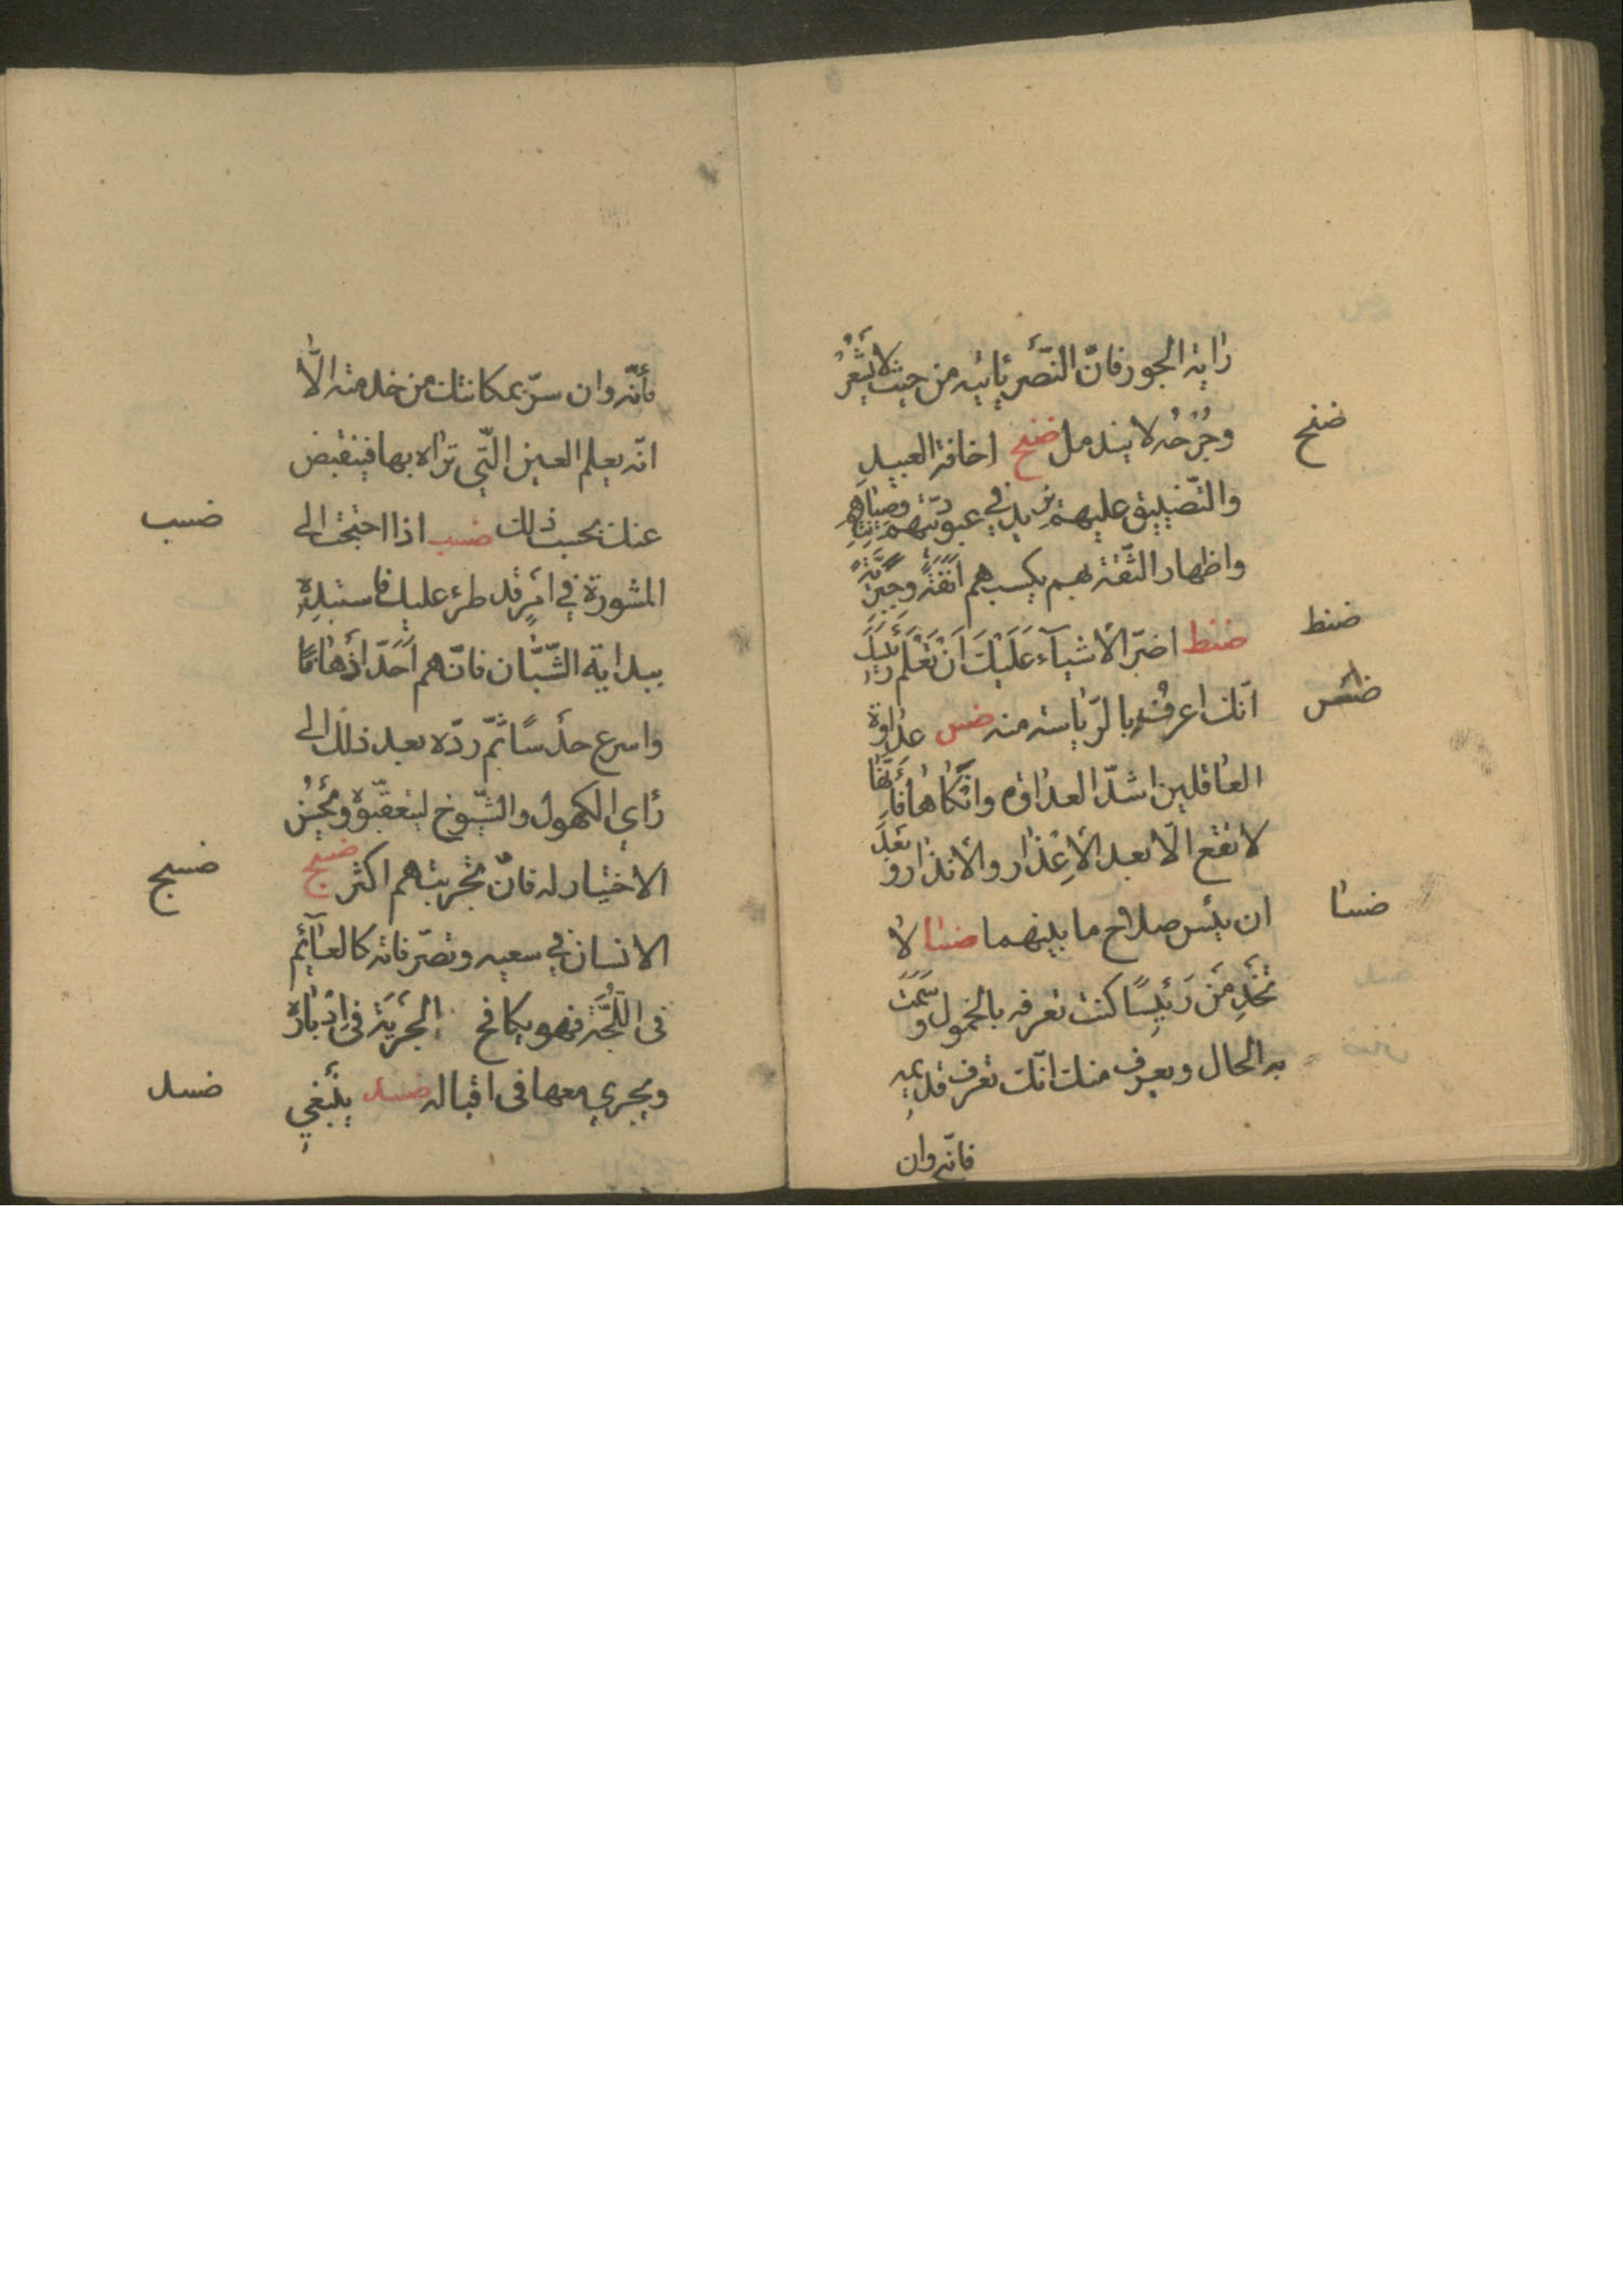 راية الجور فانّ النّصر يأتيه من حيث لا يشعر
ضنح
وجُرحُه لا يندمل ضنح اخافة العبيد
والتّضييق عليهم يزيد في عبوديّتهم وصيانتهم
واظهار الثّقة بهم يكسبهم انفَةً وجبريّةً
ضنط
ضنط اضرّ الأشياء عَلَيْكَ اَنْ تُعْلِمَ رئيسَكَ
ضس
انّك اعرفُ بالرّياسة منه ضس عداوة
العاقلين اشدّ العداوة وانكاها فانّها
لا تقع الّا بعد الأعذار والأنذار وبَعْدَ
ضسا
ان يئس صلاح ما بينهما ضسا لا
تخدِمَنّ رَئيسًا كنت تعرفه بالخمول وسَمَت
به الحال ويعرف منك انّك تعرف قديمه
فانّه وان
فأنّه وان سرّ بمكانتك من خدمته الّا
انّه يعلم العين الّتي تراه بها فينقبض
ضسب
عنك بحسب ذلك ضسب اذا احتجت الى
المشورة في امرٍ قد طرء عليك فاستبدِهِ
ببداية الشّبّان فانّهم اَحَدّ اَذهانًا
واسرع حدْسًا ثمّ ردّه بعد ذلك الى
رأي الكهول والشّيوخ ليتعقّبوه ويُحْسِن
ضسج
الاختيار له فانّ تجربتهم اكثر ضسج
الانسان في سعيه وتصرّفاته كالعائم
فى اللُّجّة فهو يكافح الجَريَةَ في اِدْبارِه
ضسد
ويجري معها فى اقباله ضسد ينبغي